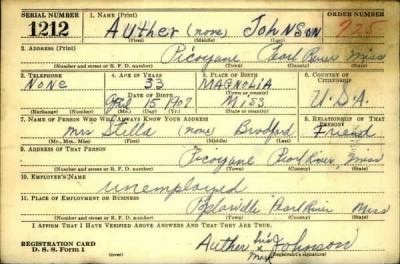 SERIAL NUMBER 1. NAME (Print) ORDER NUMBER
1212 AUTHER (none) JOHNSON 925
(First) (Middle) (Last)
2. ADDRESS (Print)
Picayune Pearl River Miss
(Number and street or R. F. D. number) (Town) (County) (State)
3. TELEPHONE 4. AGE IN YEARS 5. PLACE OF BIRTH 6. COUNTRY OF CITIZENSHIP
NONE 33 MAGNOLIA
DATE OF BIRTH (Town or county)
April 15 1907 Miss U.S.A.
(Exchange) (Number) (Mo.) (Day) (Yr.) (State or country)
7. NAME OF PERSON WHO WILL ALWAYS KNOW YOUR ADDRESS 8. RELATIONSHIP OF THAT PERSON
Mrs Stella none Friend
(Mr., Mrs., Miss) (First) (Middle) (Last)
9. ADDRESS OF THAT PERSON
Picayune Pearl River, Miss
(Number and street or R. F. D. number) (Town) (County) (State)
10. EMPLOYER'S NAME
unemployed
11. PLACE OF EMPLOYMENT OR BUSINESS
Pearl River Miss
(Number and street or R. F. D. number) (Town) (County) (State)
I AFFIRM THAT I HAVE VERIFIED ABOVE ANSWERS AND THAT THEY ARE TRUE.
REGISTRATION CARD Auther his x mark Johnson
D. S. S. Form 1 (Registrant's signature)